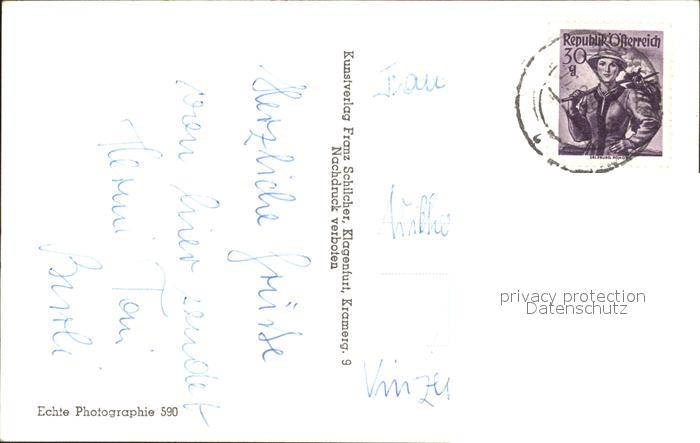 Herzliche Grüße
von hier sendet
Hermi Toni
Burli
Echte Photographie 590
Kunstverlag Franz Schilcher, Klagenfurt, Kramerg. 9
Nachdruck verboten
Republik Österreich
30
g
Frau
Vinze
privacy protection
Datenschutz